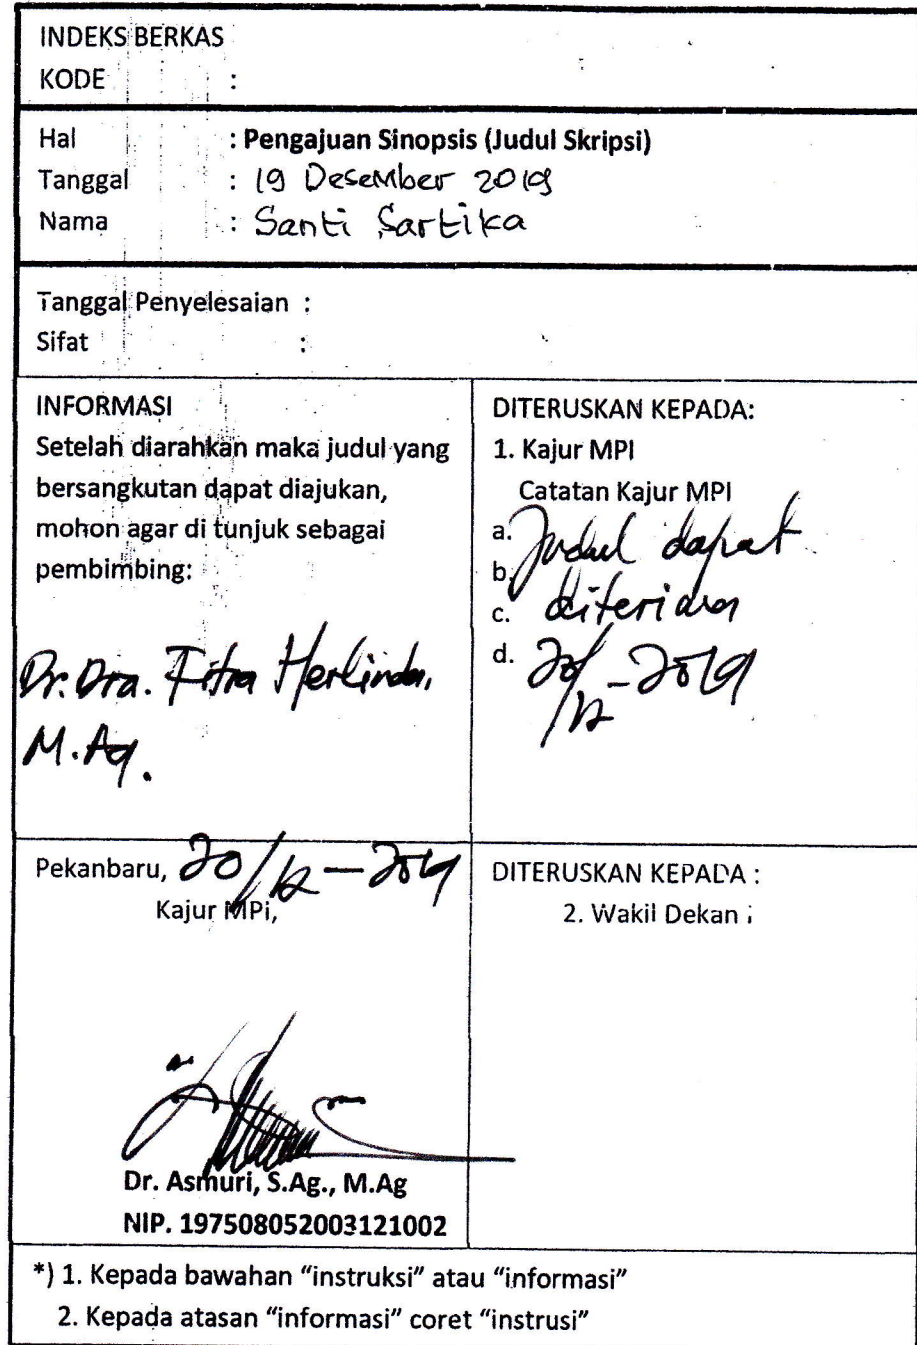 INDEKS BERKAS
KODE :
Hal : Pengajuan Sinopsis (Judul Skripsi)
Tanggal : 19 Desember 2019
Nama : Santi Sartika
Tanggal Penyelesaian :
Sifat :
INFORMASI
Setelah diarahkan maka judul yang
bersangkutan dapat diajukan,
mohon agar di tunjuk sebagai
pembimbing:
Dr. Dra. Fitra Herlinda,
M.Ag.
DITERUSKAN KEPADA:
1. Kajur MPI
Catatan Kajur MPI
a. Judul dapat
b.
c. diterima
d. 20/12-2019
Pekanbaru, 20/12-2019
Kajur MPi,
Dr. Asmuri, S.Ag., M.Ag
NIP. 197508052003121002
DITERUSKAN KEPADA :
2. Wakil Dekan i
*) 1. Kepada bawahan “instruksi” atau “informasi”
2. Kepada atasan “informasi” coret “instrusi”